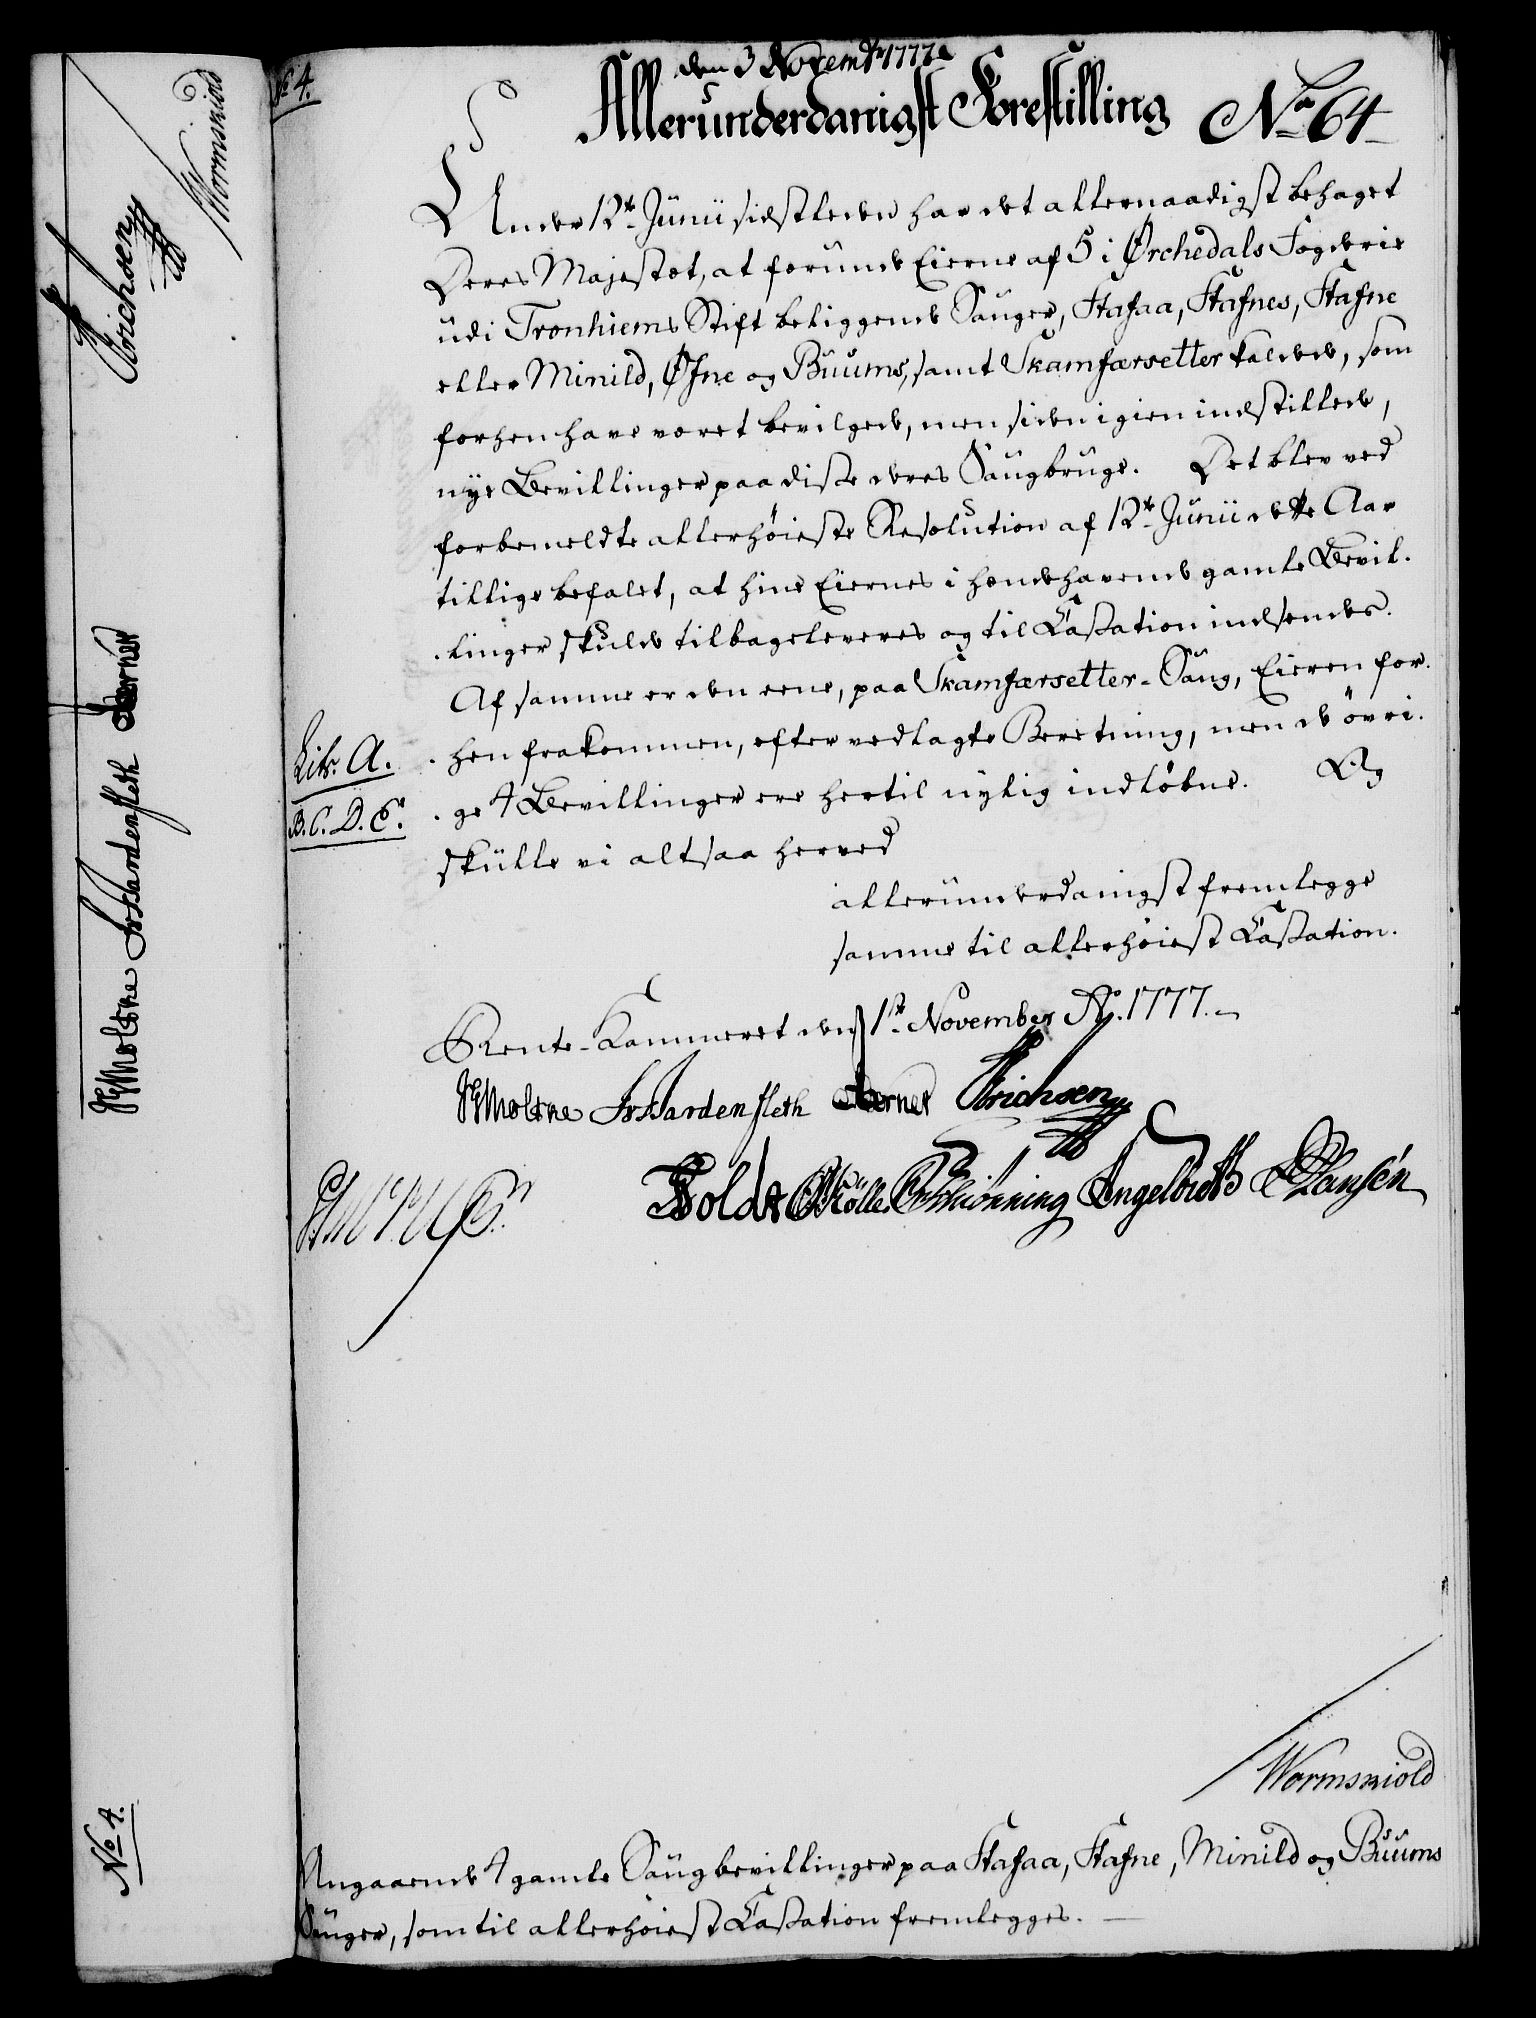 No 4.
den 3 Novembr 1777
Allerunderdanigst Forestilling No 64
Under 12te Junii sidstleden har det allernaadigst behaget
Deres Majestæt, at forunde Eierne af 5 i Ørchedals Fogderie
udi Tronhiems Stift beliggende Sauger, Stafaa, Stafnes, Stafne
eller Minild, Øfne og Buums, samt Skamfærsetter kaldede, som
forhen have været bevilgede, men siden igien indstillede,
nye Bevillinger paa disse deres Saugbruge. Det blev ved
forbemeldte allerhöieste Resolution af 12te Junii dette Aar
tillige befalet, at hine Eiernes i hændehavende gamle Bevil-
linger skulde tilbageleveres og til Cassation indsendes.
Af samme er den eene, paa Skamfærsetter-Saug, Eieren for-
Litr. A. hen frakommen, efter vedlagte Beretning, men de övri-
B. C. D. E. ge 4 Bevillinger ere hertil nylig indlöbne. Og
skulle vi altsaa herved
allerunderdanigst fremlegge
samme til allerhöiest Cassation.
Rente-Kammeret den 1ste November Ao. 1777.
HMoltke Hardenfleth Berner Erichsen
Holdt Müller Schiönning Engelbreth Hansen
Wormskiold
Angaaende 4 gamle Saugbevillinger paa Stafaa, Stafne, Minild og Buums
Sauger, som til allerhöiest Cassation fremlegges.
HMoltke Hardenfleth Berner Erichsen
Wormskiold
No 4.